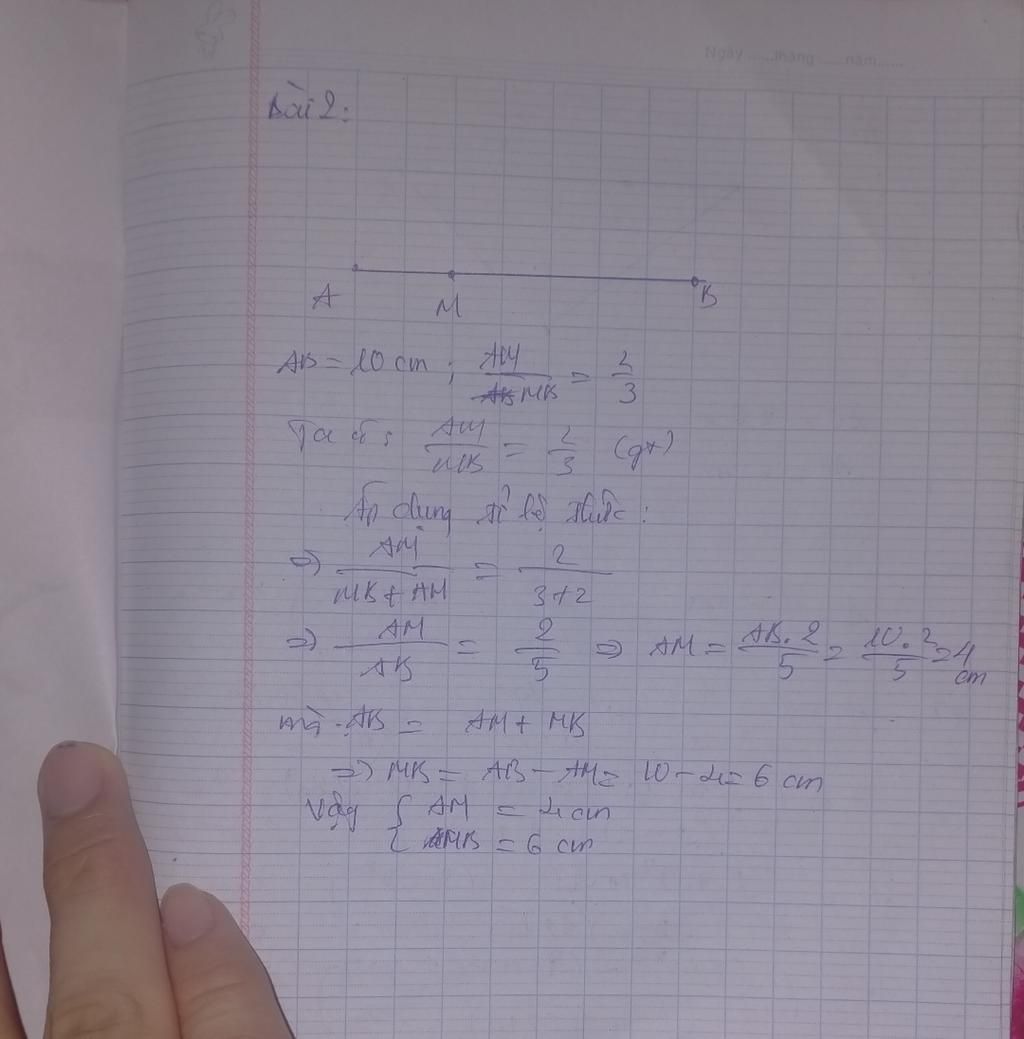 Ngày ......tháng ......năm......
Bài 2:
A M B
AB = 10 cm ; AM / MB = 2/3
Ta có : AM / MB = 2/3 (gt)
Áp dụng tỉ lệ thức :
⇒ AM / MB + AM = 2 / 3+2
⇒ AM / AB = 2/5 ⇒ AM = AB. 2 / 5 = 10. 2 / 5 = 4 cm
mà AB = AM + MB
⇒ MB = AB - AM = 10 - 4 = 6 cm
Vậy { AM = 4 cm
MB = 6 cm